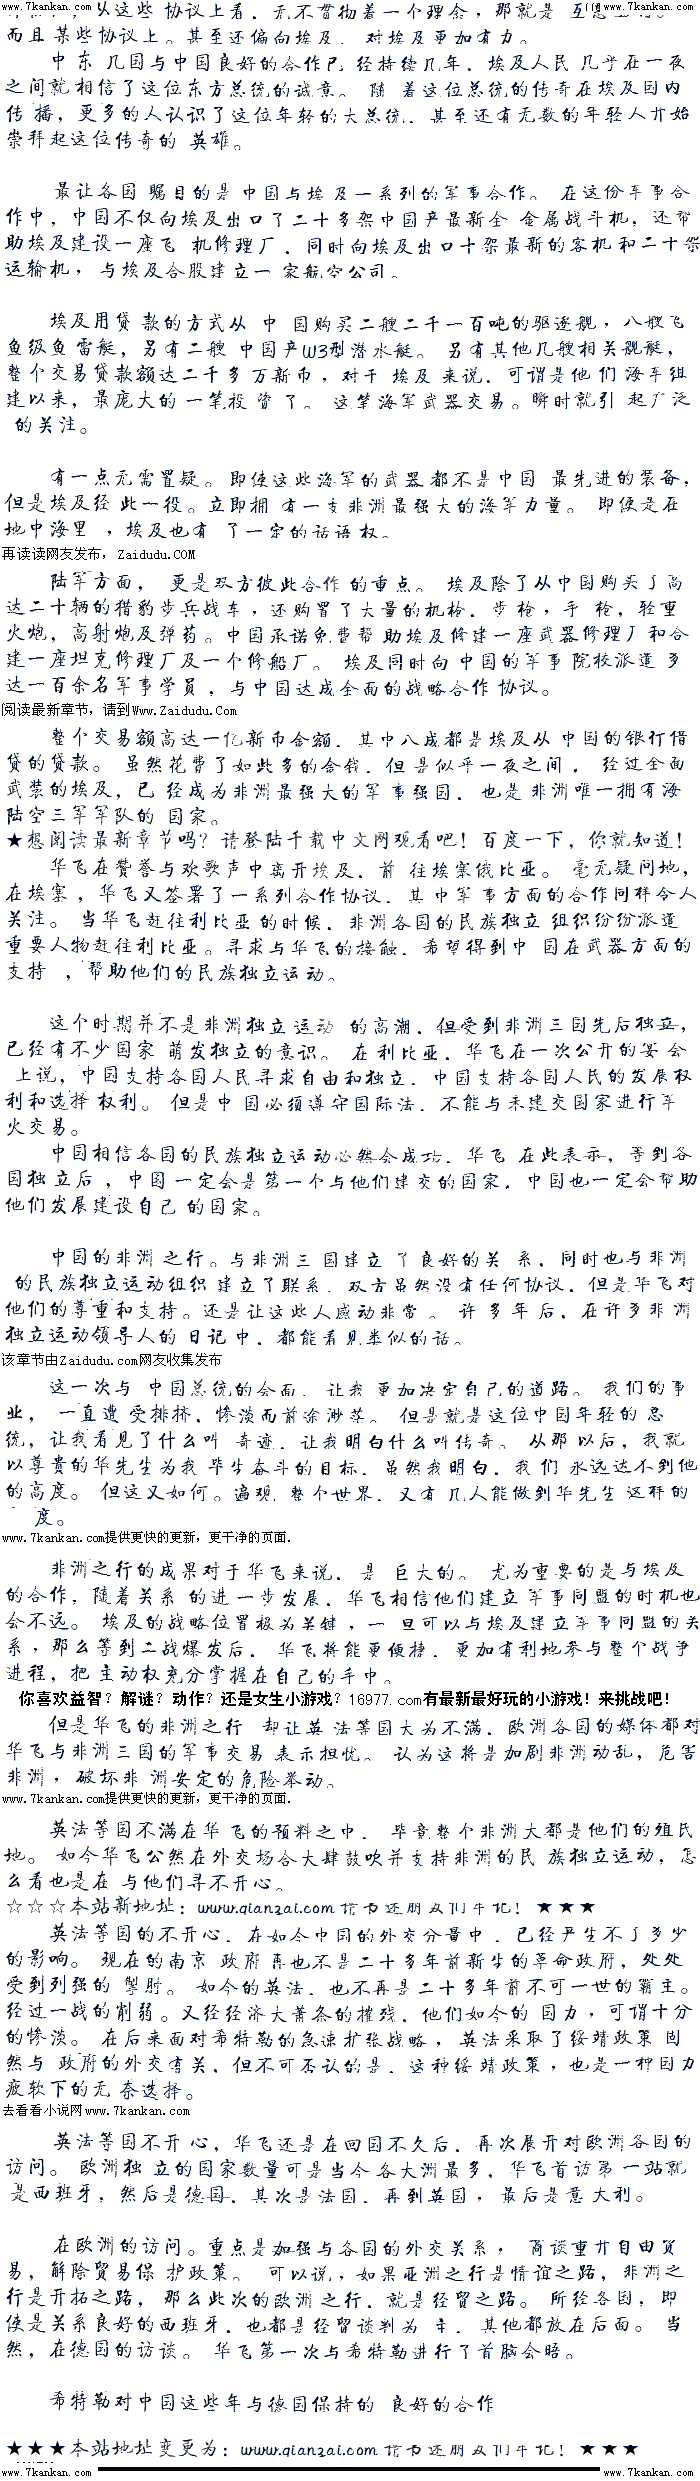 www.7kankan.com www.7kankan.com
从这些 协议上看，无不贯彻着一个理念，那就是 互惠互利。
而且 某些协议上。甚至还偏向埃及，对埃及更加有力。
中 东 几国与中国良好的合作已 经持续几年，埃及人民 几乎在一夜
之间就相信了这位东方总统的诚意。 随 着这位总统的传奇在埃及国内
传 播，更多的人认识了这位年轻的大总统，甚至还有无数的年轻人开始
崇拜起这位传奇的 英雄。
最让各国 瞩目的是 中国与埃 及一系列的军事合作。 在这份军事合
作中，中国不仅向埃及出口了二十多架中国产最新全 金属战斗机，还帮
助埃及建设一座飞 机修理厂，同时向埃及出口十架最新的客机 和二十架
运输机，与埃及合股建立一 家航空公司。
埃及用贷 款的方式从 中 国购买二艘二千一百吨的驱逐舰，八艘飞
鱼级鱼 雷艇，另有二艘 中国产W3型潜水艇。 另有其他几艘相关舰艇，
整个交易贷款额达二千多万新币，对于 埃及 来说，可谓是他们 海军组
建以来，最庞大的 一笔投 资 了。 这笔海军武器交易。瞬时就引 起广泛
的关注。
有一点无需置疑。即使这些海军的武器都不是中国 最先进的装备，
但是埃及经 此一役。立即拥 有一支非洲最强大的海军力量。 即便是在
地中海里 ，埃及也有 了一定的话语权。
再读读网友发布，Zaidudu.COM
陆军方面， 更是双方彼此合作的重点。 埃及除了从中国购买了高
达二十辆的猎豹步兵战车，还购置了大量的机枪，步 枪，手 枪，轻重
火炮，高射炮及弹药。中国承诺免费帮 助埃及修建一座武器修理厂和合
建一座坦克修理厂及一个修船厂。 埃及同时向 中国的军事 院校派遣 多
达一百余名军事学员，与中国达成全面的战略合作协议。
阅读最新章节，请到Www.Zaidudu.Com
整个交易额高达一亿新币金额，其中八成都是埃及从 中国的银行借
贷的贷款。 虽然花费了如此多的金钱，但是似乎一夜之间， 经过全面
武装的埃及，已 经成为非洲最强大的军事强国，也是 非洲唯一拥有海
陆空三军军队的 国家。
★想阅读最新章节吗？请登陆千载中文网观看吧！百度一下，你就知道！
华飞在赞誉与欢歌声中离开埃及，前 往埃塞俄比亚。 毫无疑问地，
在埃塞，华飞又签署了一系列合作协议，其 中军 事方面的合作同样令人
关注。 当华飞赶往利比亚的时候，非洲各国的民族独立 组织纷纷派遣
重要人物赶往利比亚。寻求与华飞的接触，希望得到中 国在武器方面的
支持 ，帮助他们的民族独立运动。
这个时期并不是非洲独立运动 的高潮，但受到非洲三国先后独立，
已经有不少国家 萌发独立的意识。 在利比亚，华飞在一次公开的宴会
上说，中国支持各国人民寻求自由和独立，中国支持各国人民的发展权
利和选择权利。 但是中 国必须遵守国际法，不能与未建交国家进行军
火交易。
中国相信各国的民族独立运动必然会成功，华飞 在此表示，等到各
国独 立后 ，中国一定会是第一个与他们建交的国家，中国也一定会帮助
他们发展建设自己 的国家。
中国的非洲 之行。与非洲三 国建立 了良好的关 系，同时也与非洲
的民族独立运动组织 建立了联系，双方虽然没有任何协议，但是华飞对
他们的尊重和支持。还是让这些人感动非常 。 许 多 年后，在许多非 洲
独立运动领导人的 日记中，都能看见类似的话。
该章节由Zaidudu.com网友收集发布
这一次与 中国总统的会面，让我 更加决定自己的道路。 我们的事
业， 一直遭 受排挤，惨淡而前途渺茫。 但是就是这位中国年轻的 总
统，让我看见了什么叫 奇迹，让我明白什么叫传奇。 从那 以后，我就
以尊贵的华先生为我 毕生奋斗的目标，虽然我明白，我 们 永远达不到他
的高度。 但这又如何。遍观 整个世界，又有 几人能做到华先生 这样的
度。
www.7kankan.com提供更快的更新，更干净的页面.
非洲之行的成果对于华飞来说，是 巨大的。 尤为重要的是与埃及
的合作，随着关系 的进一步发展，华飞相信他们建立军事同盟的时机也
会不远。 埃及的战略位置极为关键，一 旦可以与埃及建立军事同盟的关
系，那么等到二战爆发后， 华飞将能更便捷，更加有利地参与整个战争
进程，把 主动权充分掌握在自己的手中。
你喜欢益智？解谜？动作？还是女生小游戏？16977.com有最新最好玩的小游戏！来挑战吧！
但是华飞的非洲之行 却让英 法等国大为不满，欧洲各国的媒体都对
华飞与非洲三国的军事交易 表示担忧。 认为这将是加剧非洲动乱，危害
非洲，破坏非 洲安定的危险举动。
www.7kankan.com提供更快的更新，更干净的页面.
英法等国不满在华飞的预料之中， 毕竟整个非洲大都是他们的殖民
地。 如今华飞公然在外交场合大肆鼓吹并支持非洲的民 族独立运动，怎
么看也是在 与他们寻不开心。
☆☆☆本站新地址：www.qianzai.com 请书迷朋友们牢记！★★★
英法等国的不开心，在如今中国的外交分量中，已经产生不了多少
的影响。 现在的南京 政府再也不是二十多年前新生的革命政府，处处
受到列强的 掣肘。 如今的英法，也不再是二十多年前不可一世的霸主。
经过一战的削弱。又经经济大萧条的摧残，他们如今的 国力，可谓十分
的惨淡。 在后来面对希特勒的急速 扩张战略，英法采取了绥靖政策 固
然与 政府的外交有关，但不可否认的是，这种绥 靖政策，也是一种国力
疲软下的无 奈选择。
去看看小说网www.7kankan.com
英法等国不开 心，华飞还是在回国不久后，再次展开对欧洲各国的
访问。 欧洲独 立的国家数量可是当今各大洲最多，华飞首访第 一站就
是西班牙，然后是德国，其次是法国，再到英国，最后是意 大利。
在欧洲的访问。重点是加强与各国的外交关系， 商谈重开自由贸
易，解除贸易保 护政策。 可以说，如果亚洲之行是情谊之路，非洲之
行是开拓之路， 那么此次的欧洲 之行，就是经贸之路。 所经各国，即
使是关系良好的西班牙，也都是经贸谈判为 主，其他都放在后面。 当
然，在德国的访谈。 华飞第一次与希特勒进行了首脑会晤。
希特勒对中国这些年与德国保持的 良好的合作
★★★本站地址变更为：www.qianzai.com 请书迷朋友们牢记！★★★
www.7kankan.com www.7kankan.com